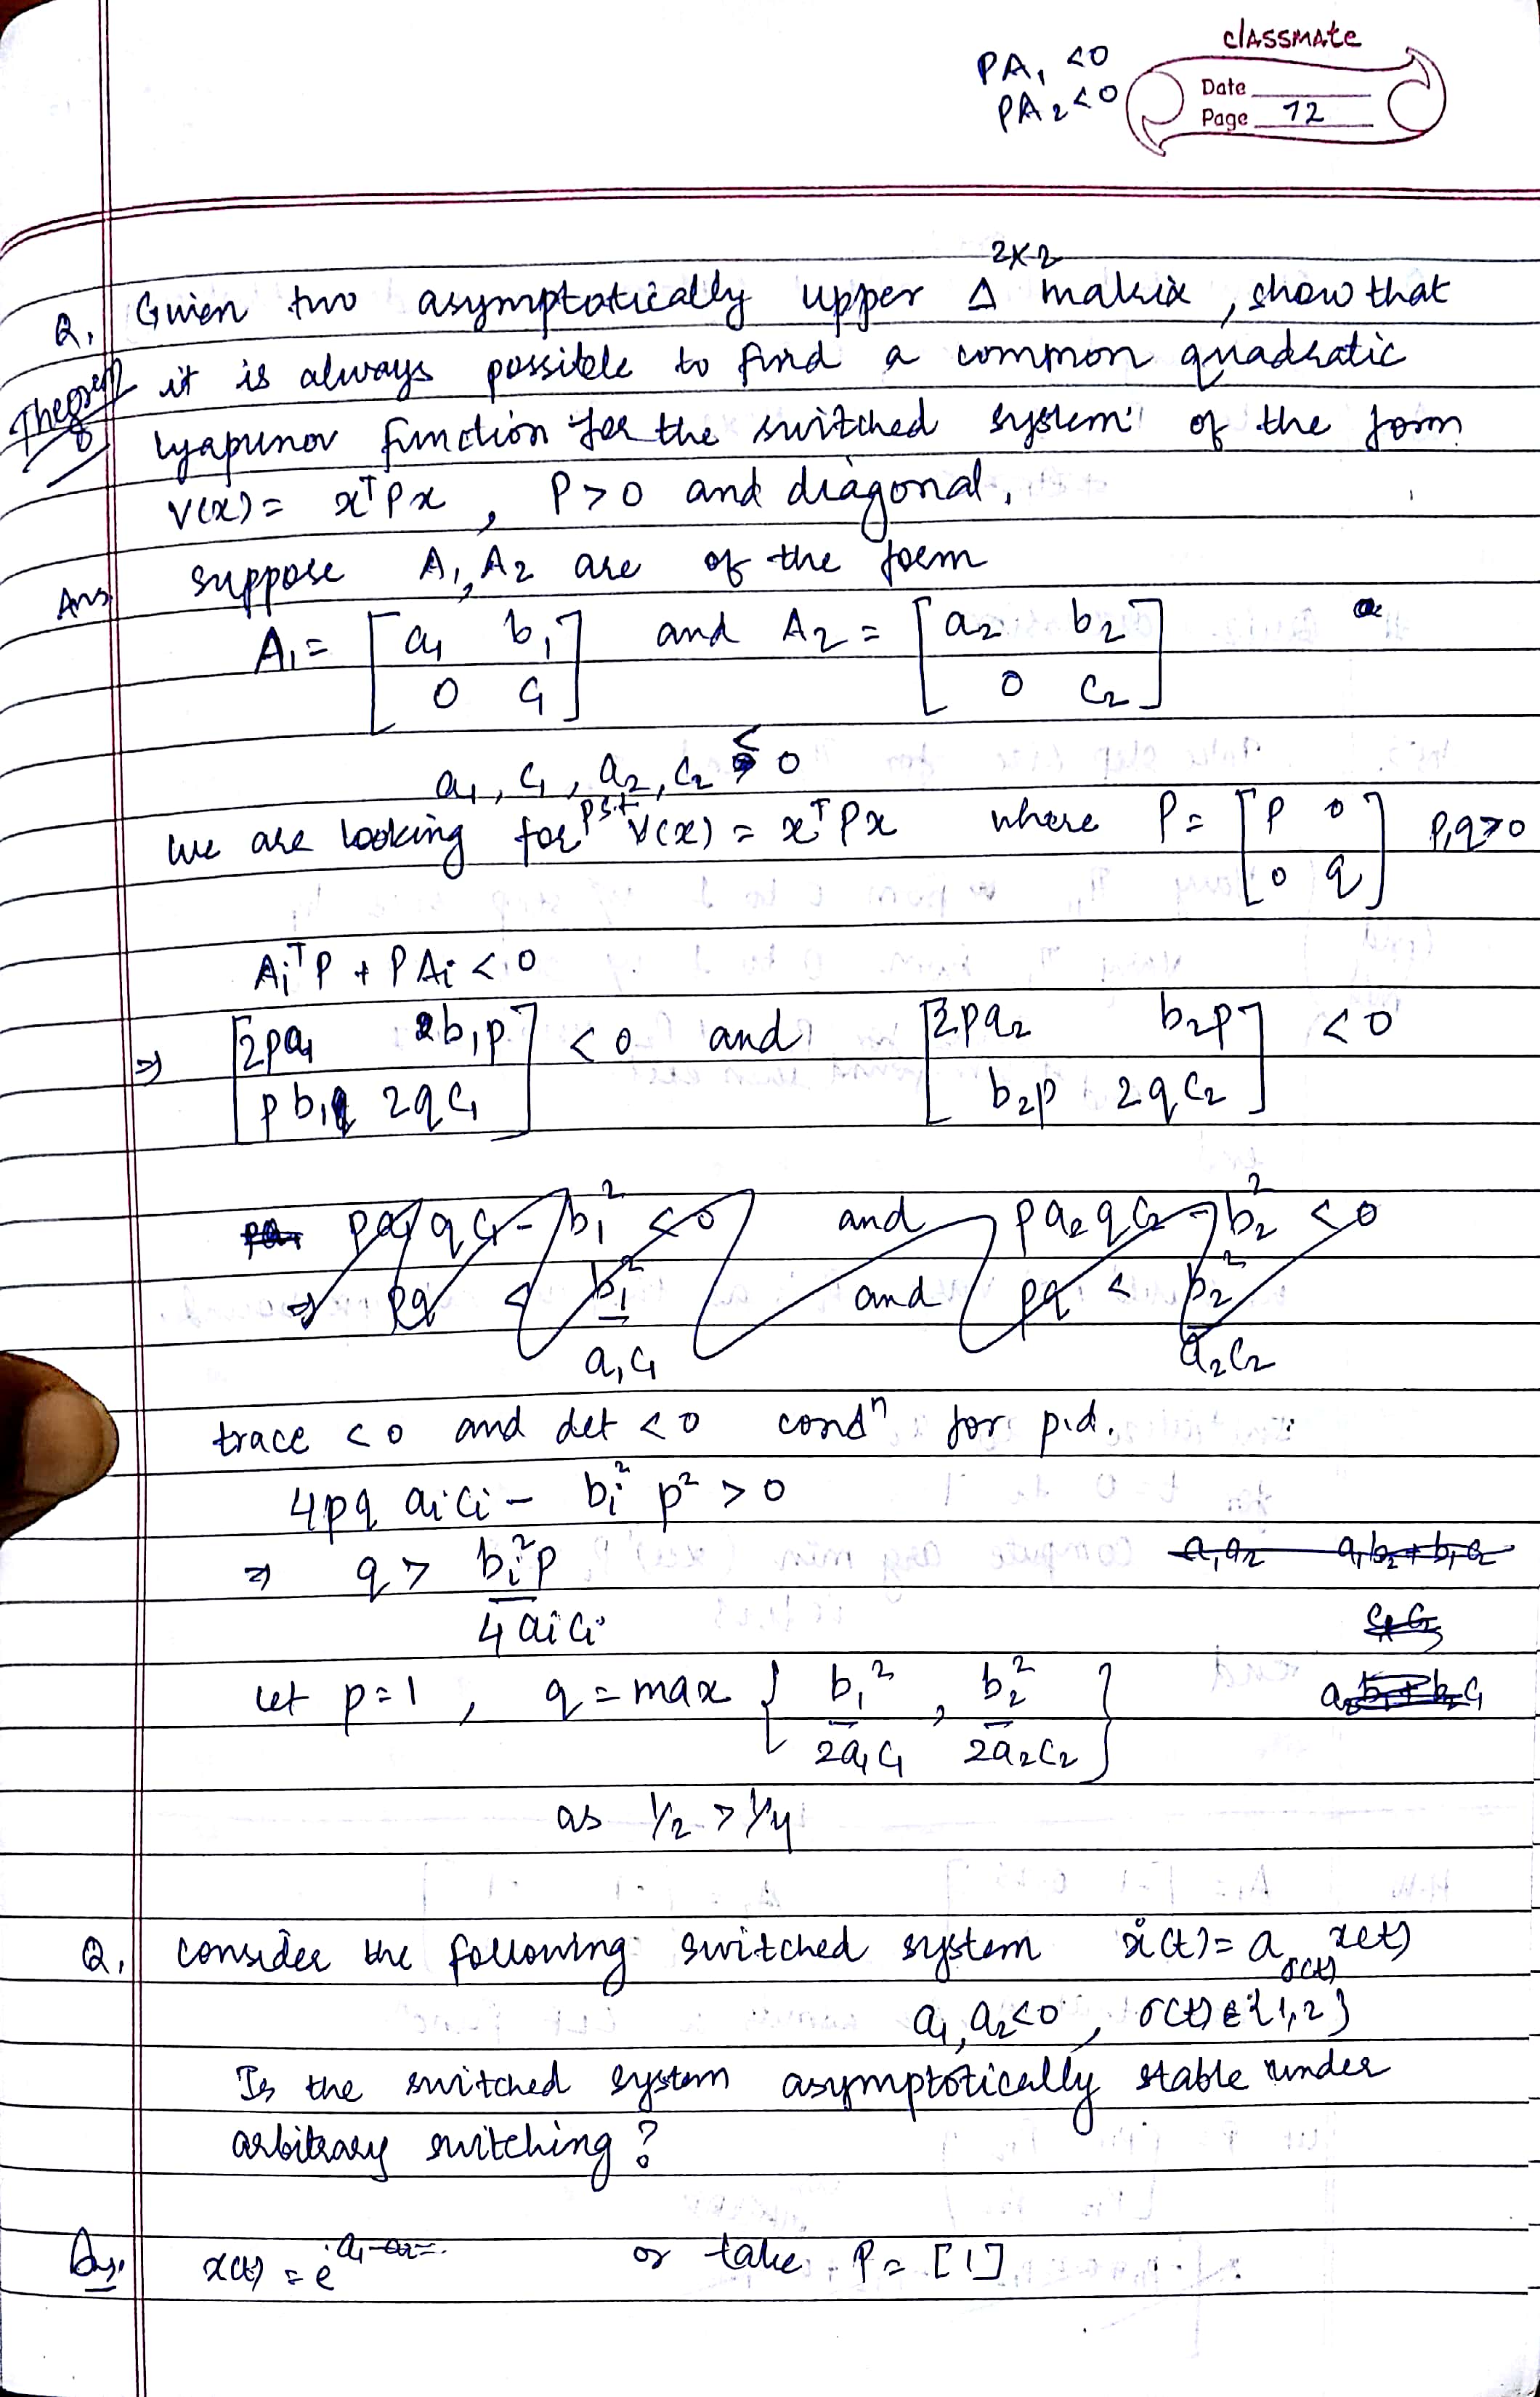 classmate
PA₁ <0
PA₂<0
Date
Page 12
2x2
Q. Given two asymptotically upper Δ matrix, show that
Theorem it is always possible to find a common quadratic
lyapunov function for the switched system of the form
V(x) = xᵀPx , P>0 and diagonal.
Ans suppose A₁, A₂ are of the form
A₁ = [a₁ b₁ and A₂ = [a₂ b₂
0 c₁] 0 c₂]
a₁, c₁, a₂, c₂ < 0
we are looking for P s.t V(x) = xᵀPx where P = [p 0 p,q>0
0 q]
AᵢᵀP + PAᵢ < 0
⇒ [2pa₁ b₁p] < 0 and [2pa₂ b₂p] < 0
[pb₁ 2qc₁] [b₂p 2qc₂]
pa₁qc₁ - b₁² < 0 and pa₂qc₂ - b₂² < 0
⇒ pq < b₁² and pq < b₂²
a₁c₁ a₂c₂
trace < 0 and det < 0 condⁿ for p.d.
4pq aᵢcᵢ - bᵢ² p² > 0
⇒ q > bᵢ²p a₁a₂ a₁b₂+b₁c₂
4aᵢcᵢ c₁c₂
let p=1 , q = max { b₁² , b₂² }
2a₁c₁ 2a₂c₂
as 1/2 > 1/4
Q. consider the following switched system ẋ(t) = a_σ(t) x(t)
a₁, a₂<0 , σ(t) ∈ {1,2}
Is the switched system asymptotically stable under
arbitrary switching?
Ans. x(t) = e or take P = [1]